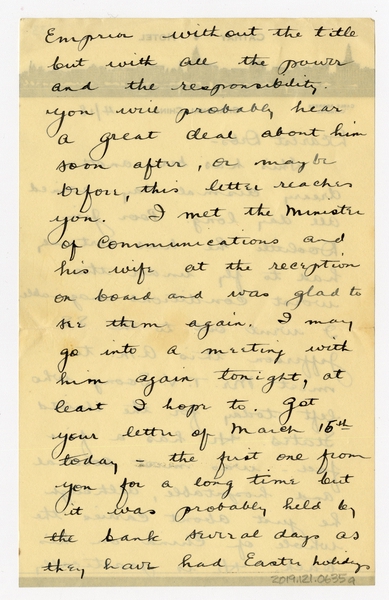 Emprior without the title
but with all the power
and the responsibility.
You will probably hear
a great deal about him
soon after, or maybe
before, this letter reaches
you. I met the Minister
of Communications and
his wife at the reception
on board and was glad to
see them again. I may
go into a meeting with
him again tonight, at
least I hope to. Got
your letter of March 16th
today - the first one from
you for a long time but
it was probably held by
the bank several days as
they have had Easter holidays
2019.121.0635a